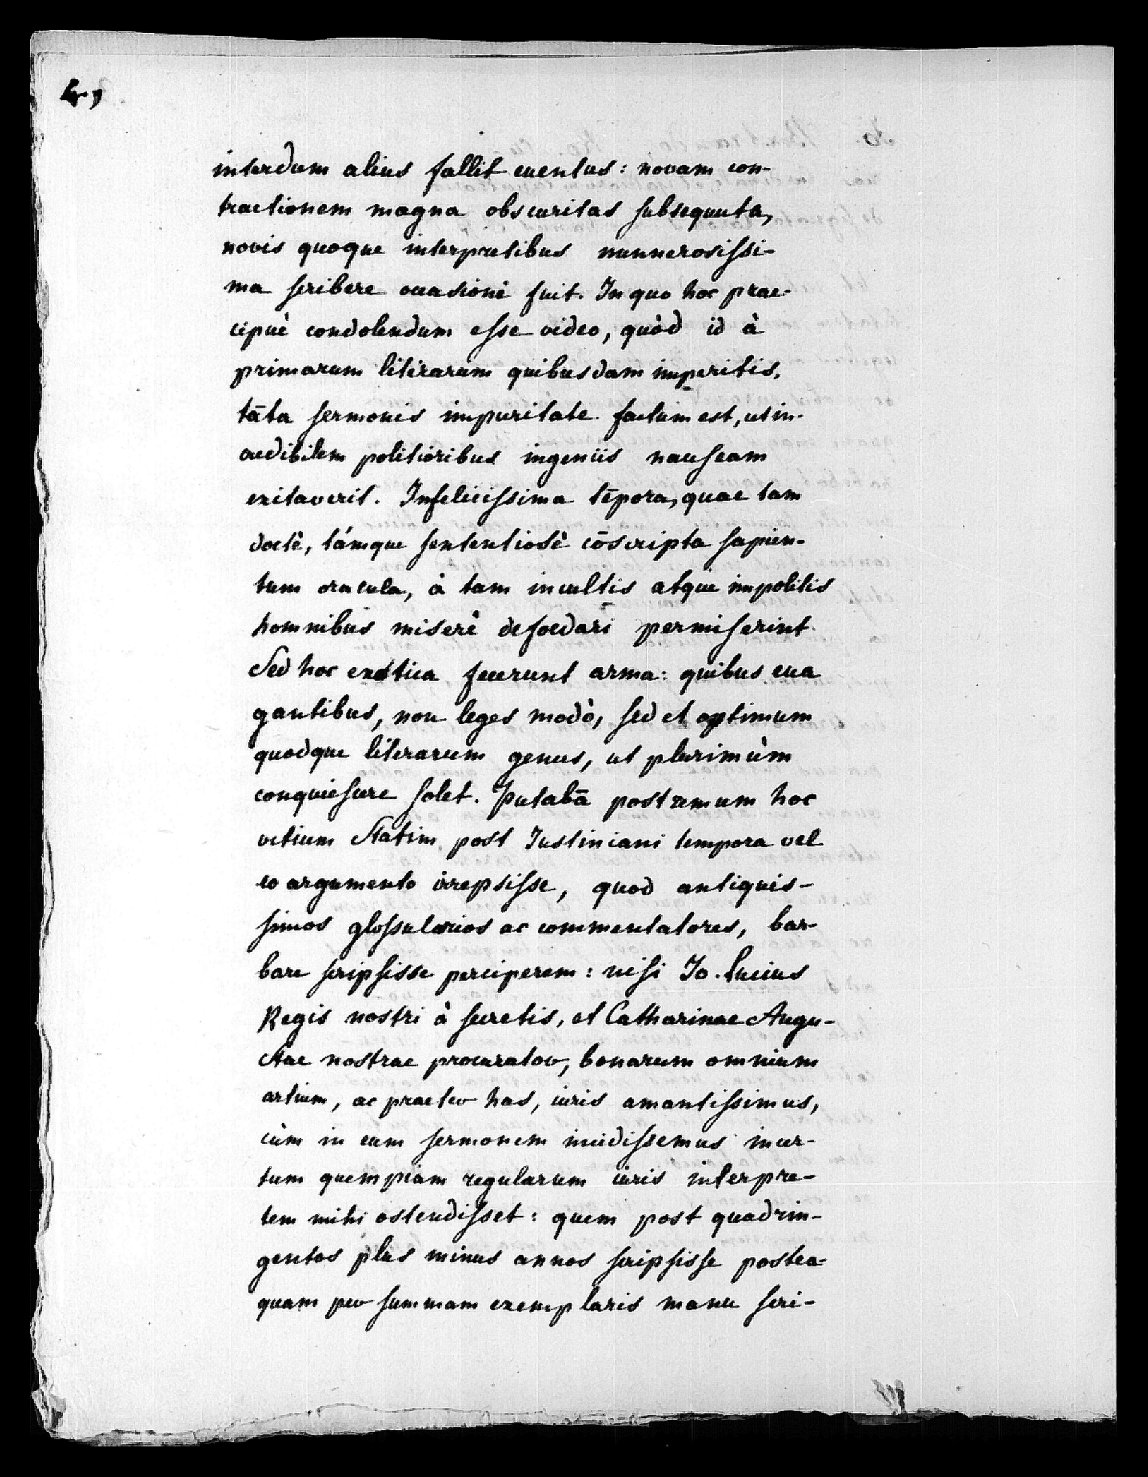 4,
interdum alius fallit euentus: novam con-
tractionem magna obscuritas subsequuta,
novis quoque interpretibus nunnerosissi-
ma scribere occasionē fuit. In quo hoc prae-
cipuè condolendum esse video, quòd id à
primarum literarum quibusdam imperitis,
tāta sermonis impuritate factum est, ut in-
credibilem politioribus ingeniis nauseam
exitaverit. Infelicissima tēpora, quae tam
doctè, támque sententiosè cōscripta sapien-
tum oracula, à tam incultis atque impolitis
homnibus miserè defoedari permiserint.
Sed hoc exotica fecerunt arma: quibus eua
gantibus, non leges modò, sed et optimum
quodque literarum genus, ut plurimùm
conquiescere solet. Putabā postremum hoc
vitium statim post Justiniani tempora vel
eo argumento irrepsisse, quod antiquis-
simos glossularios ac commentatores, bar-
bare scripsisse perciperem: nisi Jo. Lucius
Regis nostri à secretis, et Catharinae Augu-
stae nostrae procurator, bonarum omnium
artium, ac praeter has, iuris amantissimus,
cùm in eum sermonem incidissemus incer-
tum quempiam regularum iuris interpre-
tem mihi ostendisset: quem post quadrin-
gentos plus minus annos scripsisse postea-
quam per summam exemplaris manu scri-